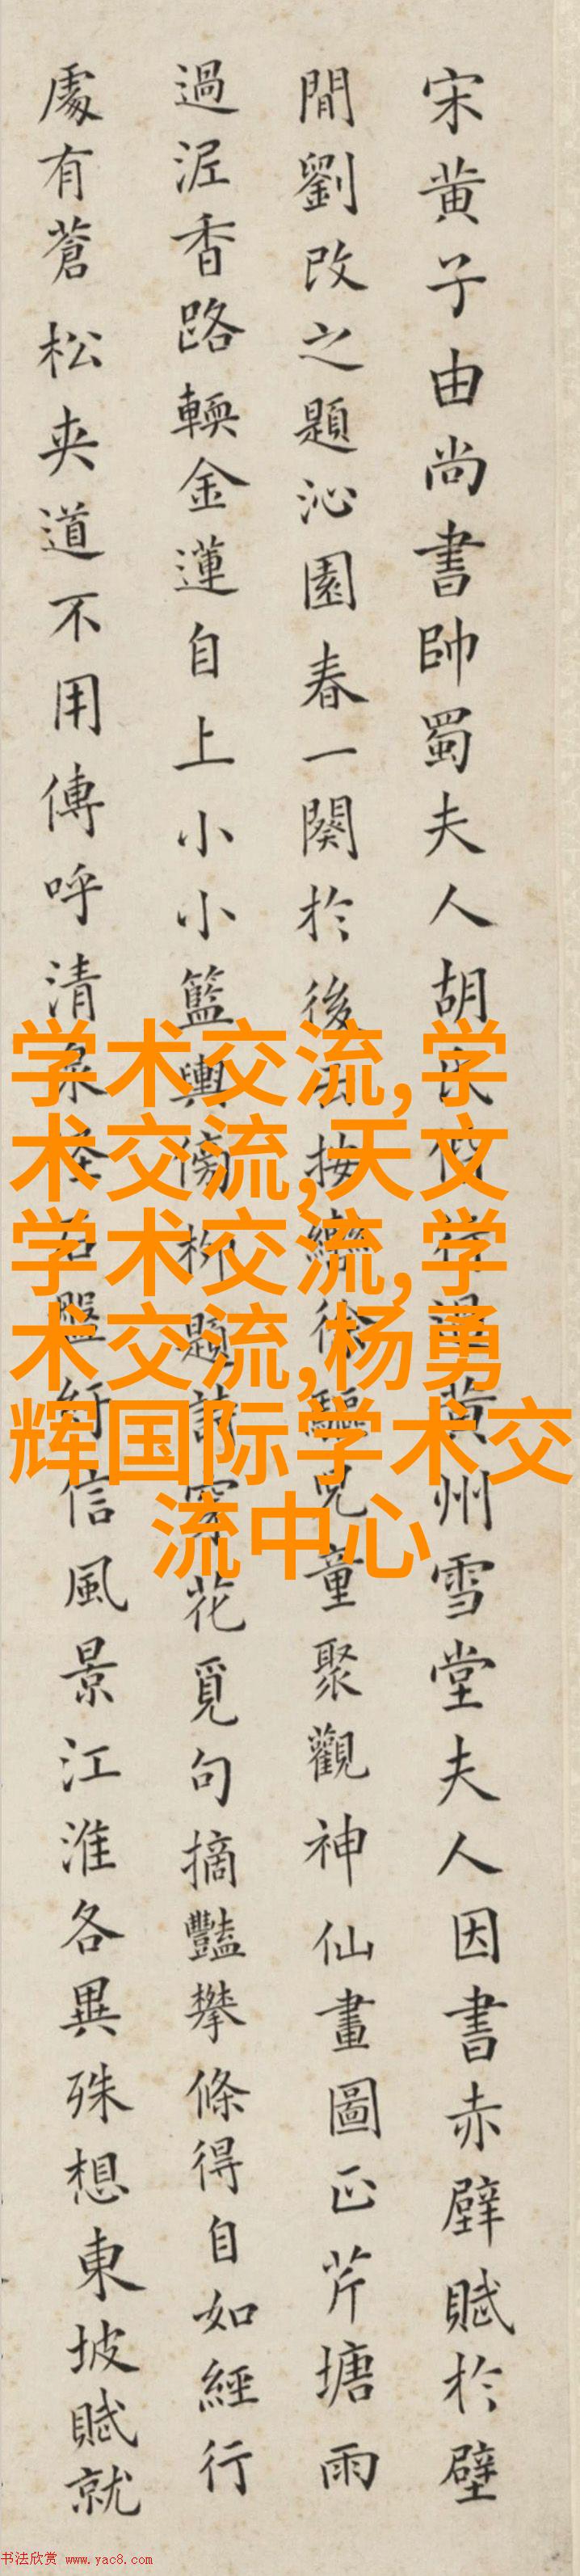 宋黄子由尚書帥蜀夫人胡氏黄州雪堂夫人因書赤壁賦於壁
間劉改之題沁園春一闋於後云按轡徐驅兒童聚觀神仙畫圖正芹塘雨
過泥香路輭金蓮自上小小籃輿傍柳題詩穿花覓句摘豔攀條得自如經行
處有蒼松夾道不用傳呼清泉怪石盤紆信風景江淮各異殊想東坡賦就
学术交流,学
术交流,天文
学术交流,学
术交流,杨勇
辉国际学术交
流中心
书法欣赏 www.yac8.com